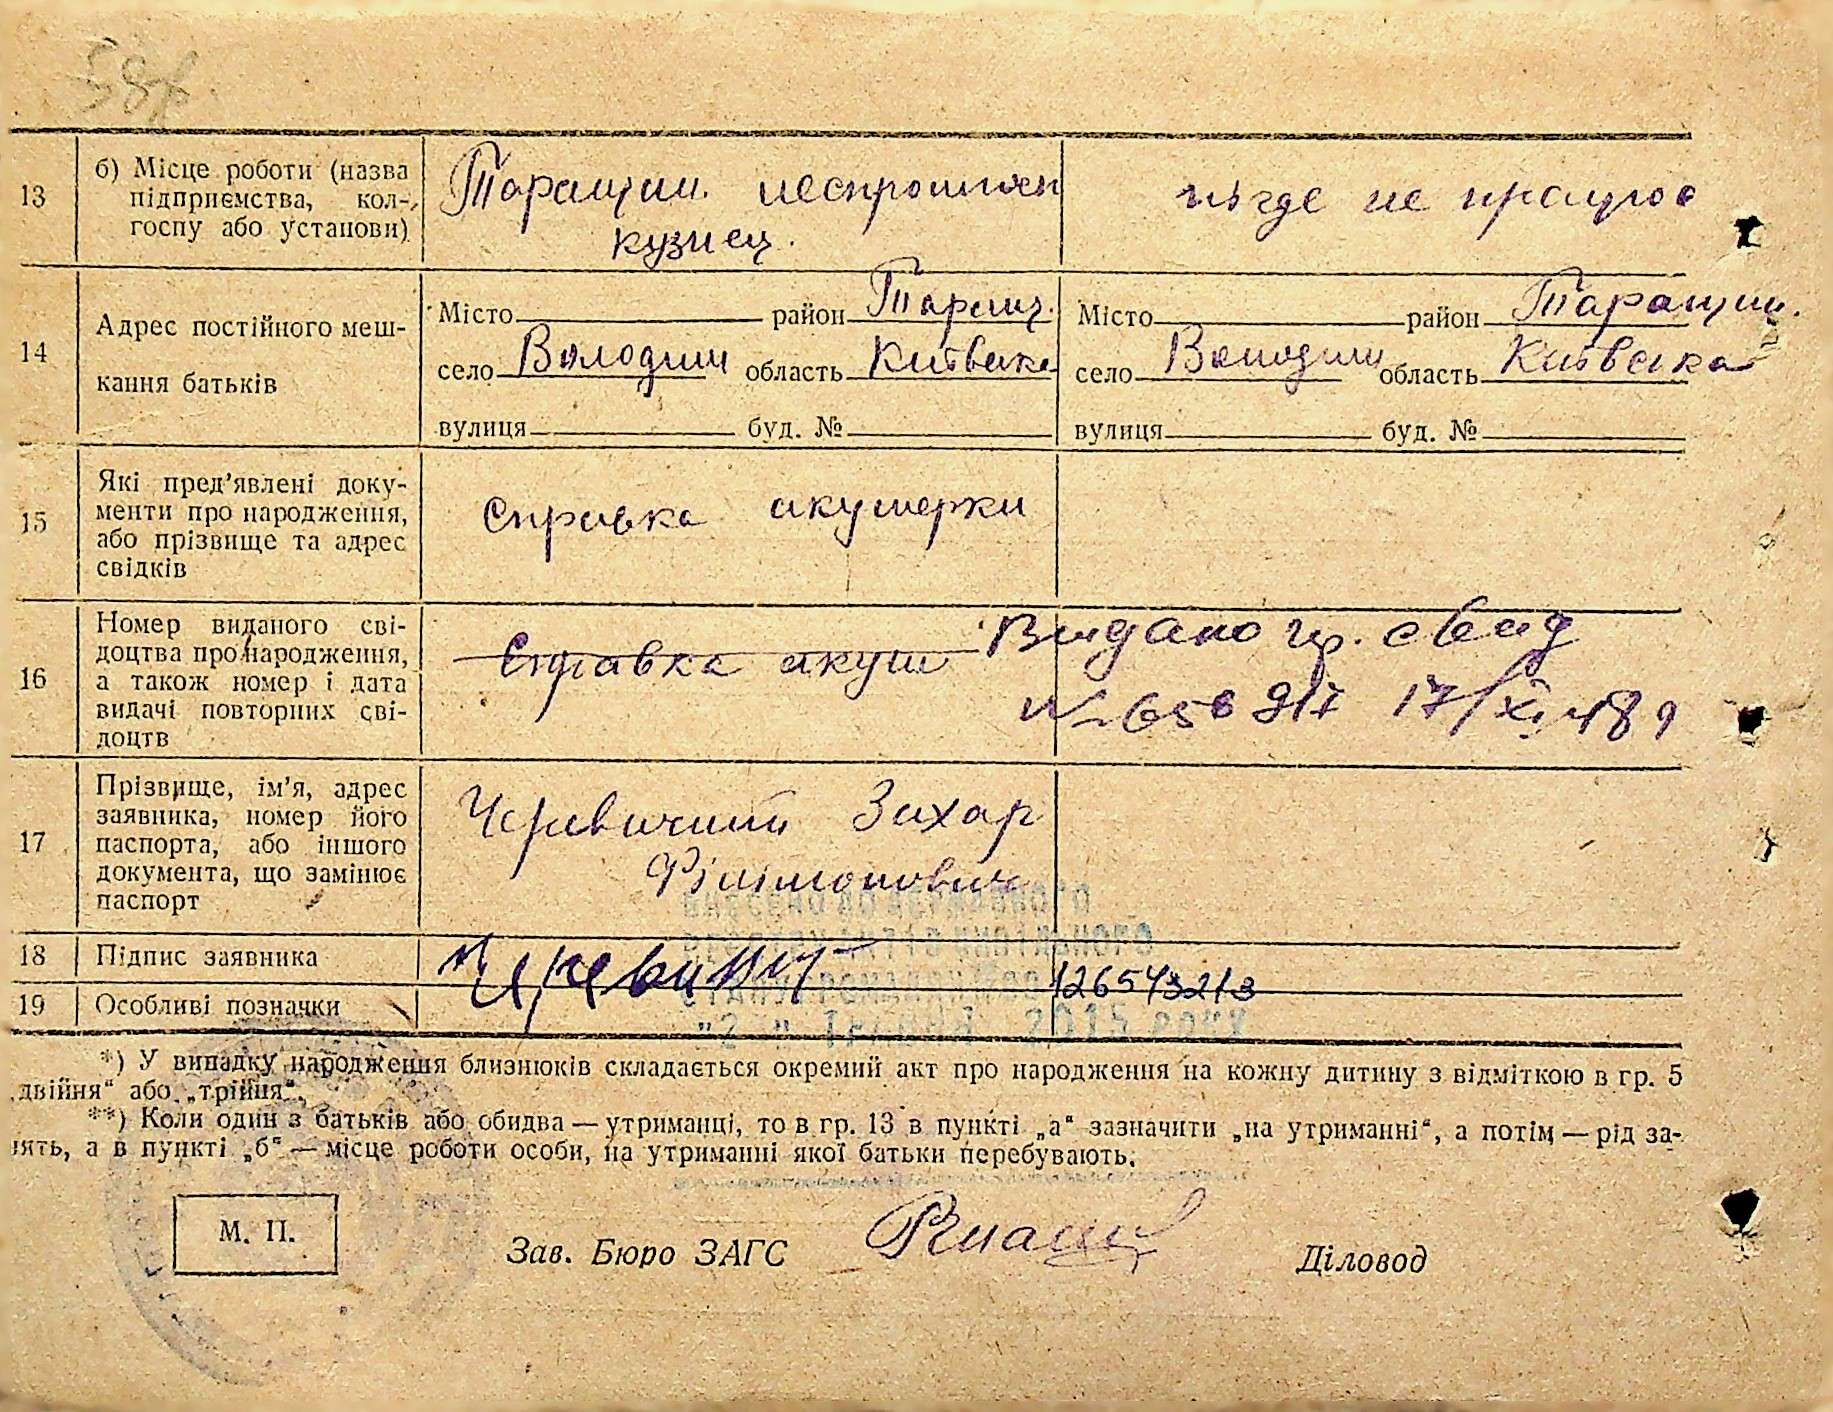 13
б) Місце роботи (назва
підприємства, кол-
госпу або установи)
кузнец.
нігде не працює
14
Адрес постійного меш-
кання батьків
Місто район Таращ.
село Володим область Київська
вулиця буд. №
Місто район Таращан.
село Володим область Київська
вулиця буд. №
15
Які пред'явлені доку-
менти про народження,
або прізвище та адрес
свідків
Справка акушерки
16
Номер виданого сві-
доцтва про народження,
а також номер і дата
видачі повторних сві-
доцтв
Справка акуш
Видано гр. свид
17
Прізвище, ім'я, адрес
заявника, номер його
паспорта, або іншого
документа, що замінює
паспорт
Черевичний Захар
Філімонович
внесено до державного
18
Підпис заявника
19
Особливі позначки
"2" Травня 2015 року
*) У випадку народження близнюків складається окремий акт про народження на кожну дитину з відміткою в гр. 5
„двійня“ або „трійня“.
**) Коли один з батьків або обидва — утриманці, то в гр. 13 в пункті „а“ зазначити „на утриманні“, а потім — рід за-
нять, а в пункті „б“ — місце роботи особи, на утриманні якої батьки перебувають.
М. П.
Зав. Бюро ЗАГС
Діловод